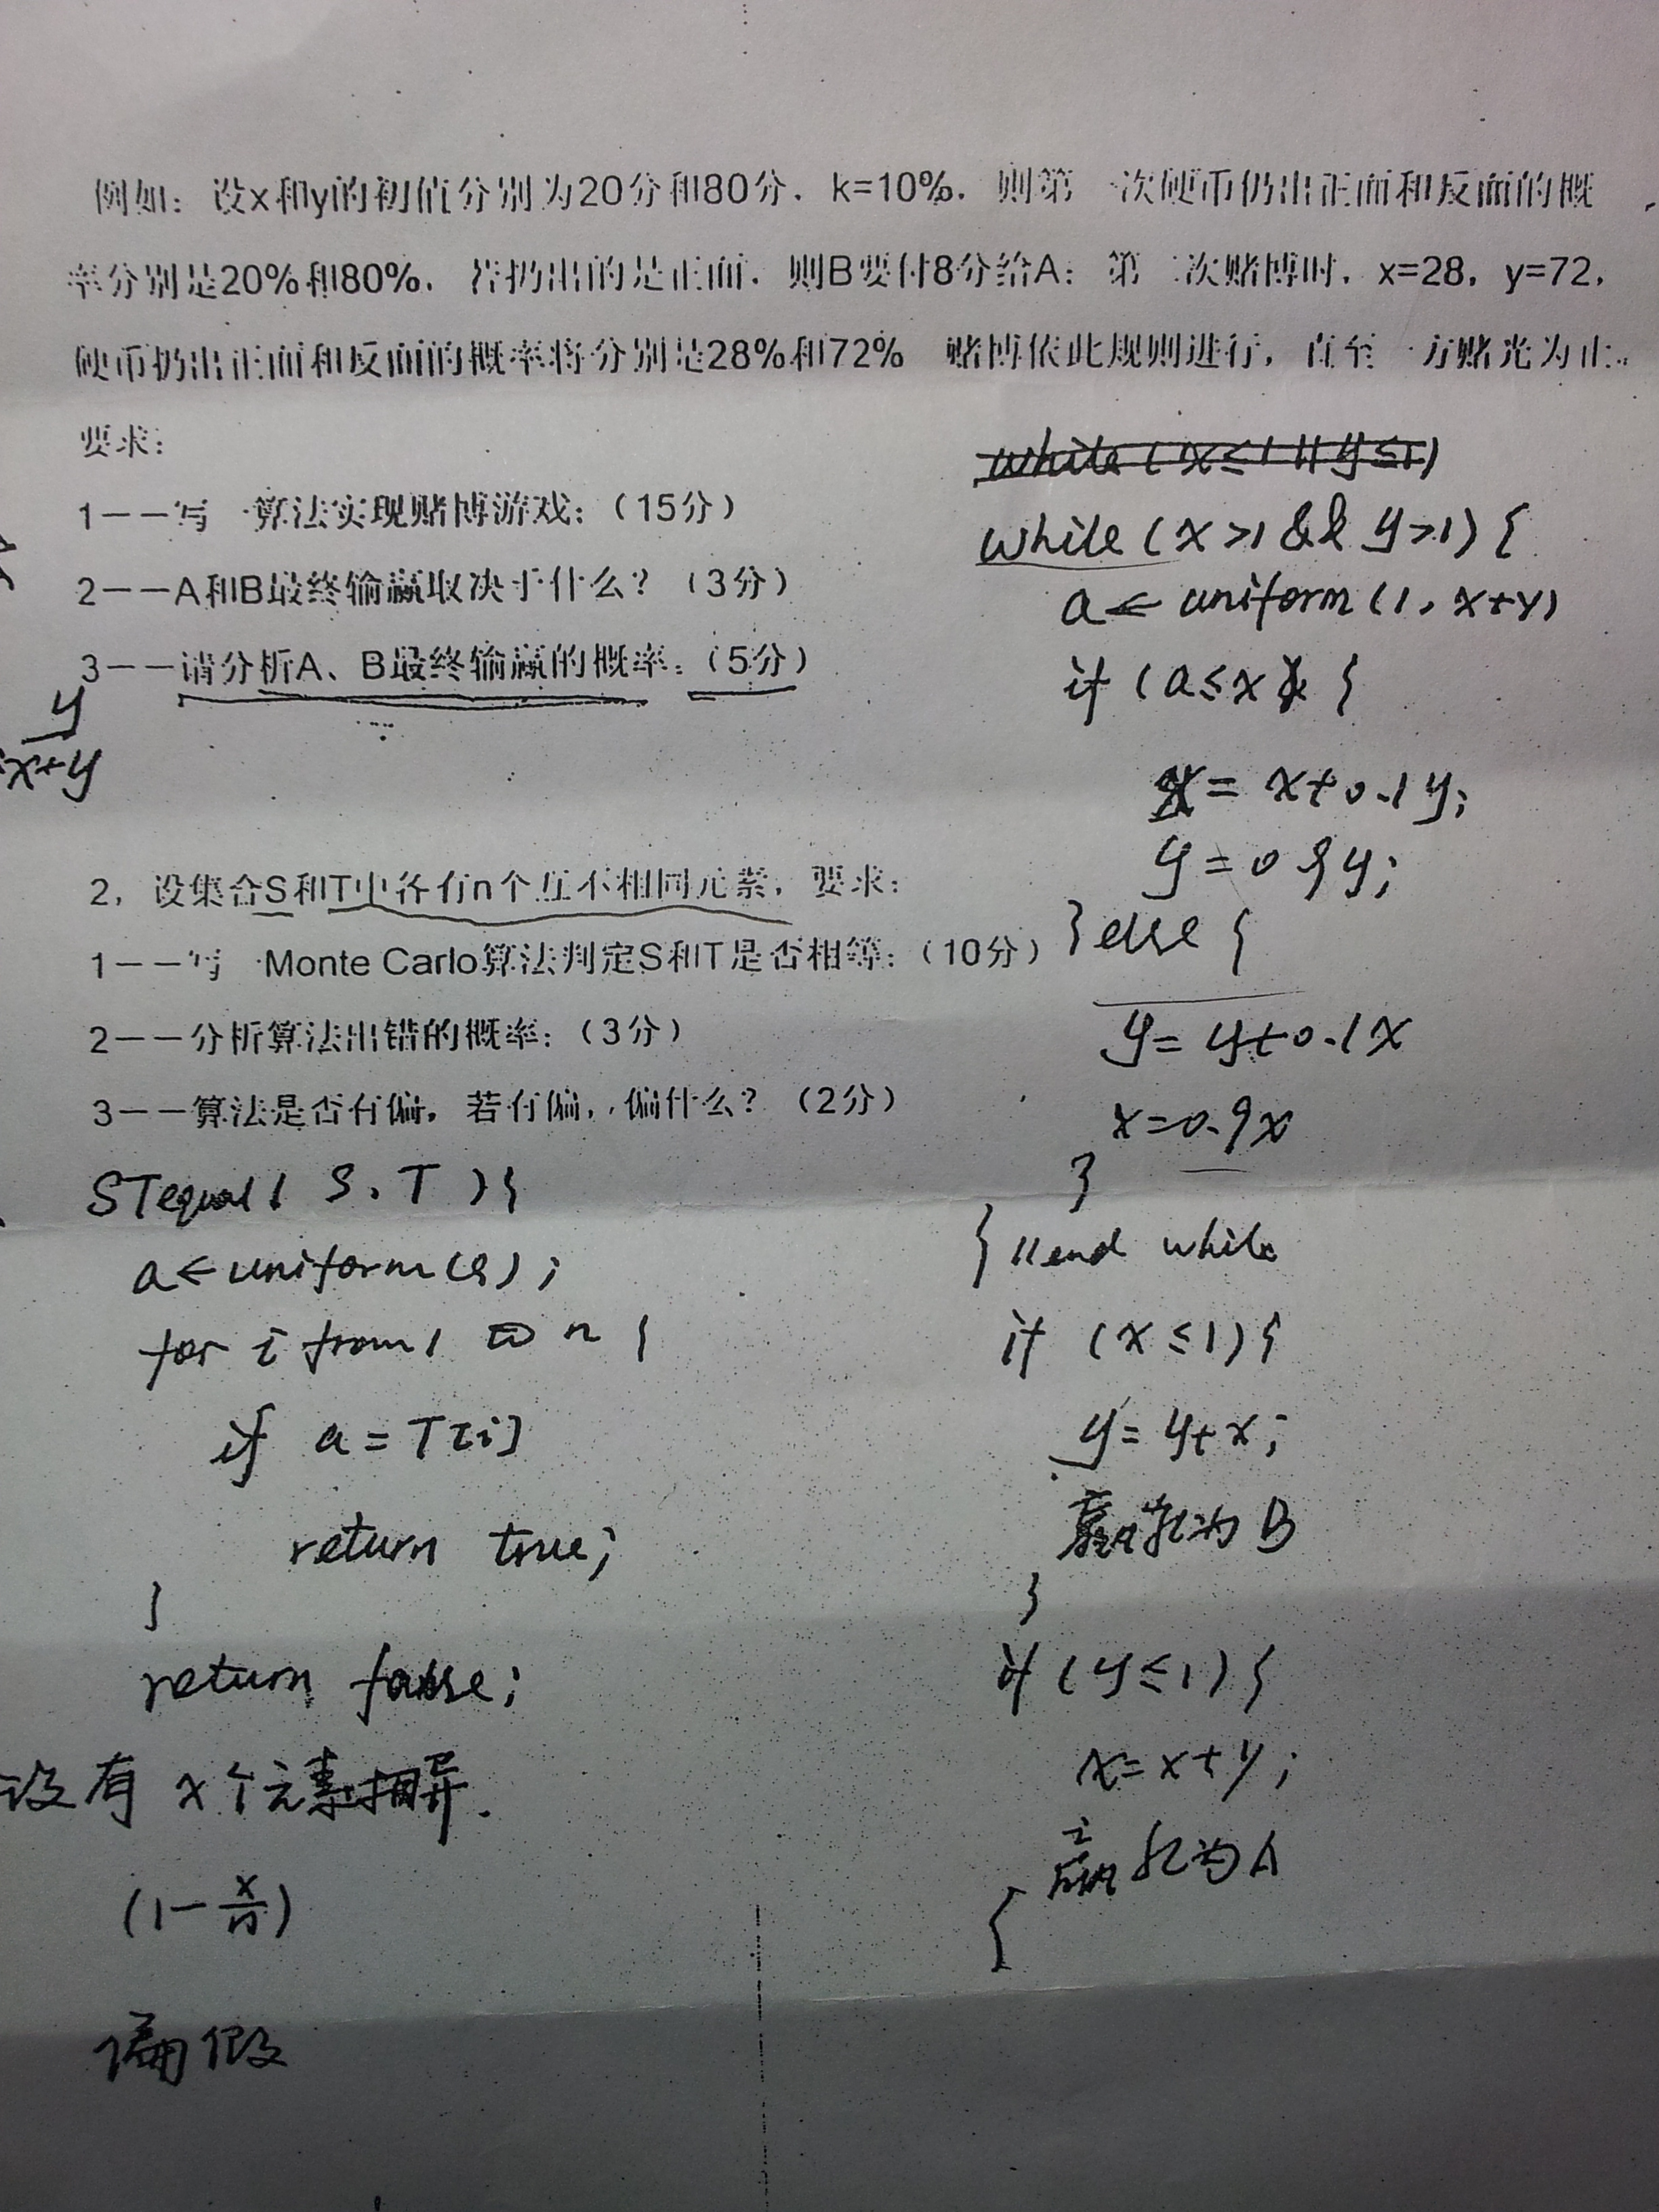 例如：设x和y的初值分别为20分和80分，k=10%，则第一次硬币仍出正面和反面的概
率分别是20%和80%，若扔出的是正面，则B要付8分给A；第二次赌博时，x=28，y=72，
硬币扔出正面和反面的概率将分别是28%和72% 赌博依此规则进行，直至一方赌光为止。
要求：
1——写一算法实现赌博游戏；（15分）
2——A和B最终输赢取决于什么？（3分）
3——请分析A、B最终输赢的概率；（5分）
y
x+y
2，设集合S和T中各有n个互不相同元素，要求：
1——写一Monte Carlo算法判定S和T是否相等；（10分）
2——分析算法出错的概率；（3分）
3——算法是否有偏，若有偏，偏什么？（2分）
STequal( S, T ){
a←uniform(S);
for i from 1 to n {
if a = T[i]
return true;
}
return false;
设有 x个元素相异.
(1-x/n)
偏假
while (x≤1 || y≤1)
while (x>1 && y>1) {
a ← uniform(1, x+y)
if (a≤x) {
x = x+0.1y;
y = 0.9y;
} else {
y = y+0.1x
x=0.9x
}
} //end while
if (x≤1){
y = y+x;
赢家为 B
}
if (y≤1) {
x=x+y;
赢家为A
{